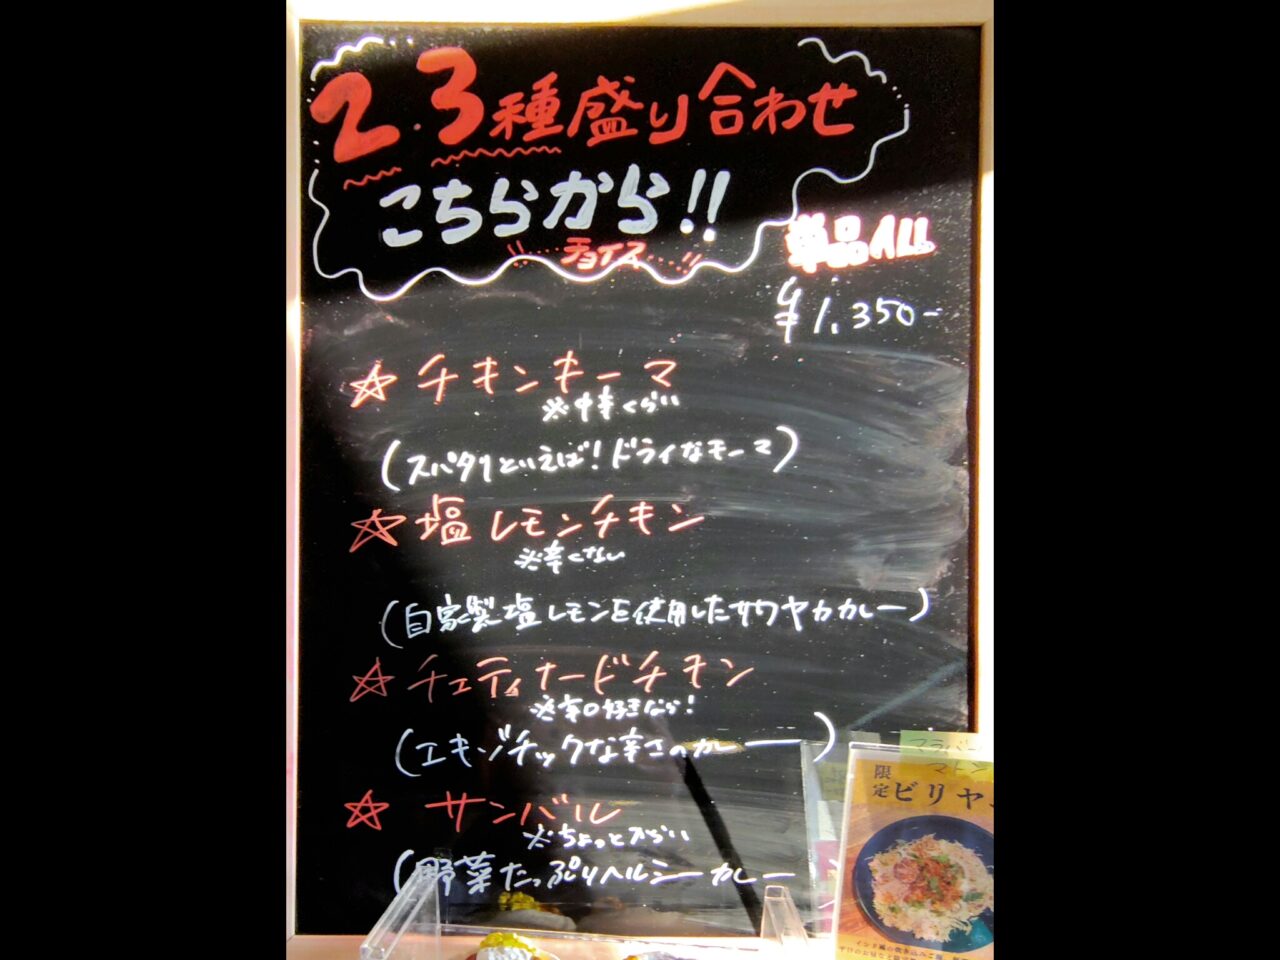 2.3種盛り合わせ
こちらから!!
チョイス
単品ALL
¥1,350-
☆チキンキーマ
※中辛くらい
(スパタリといえば!ドライなキーマ)
☆塩レモンチキン
※辛くない
(自家製塩レモンを使用したサワヤカカレー)
☆チェティナードチキン
※辛口好きなら!
(エキゾチックな辛さのカレー)
☆サンバル
※ちょっとからい
(野菜たっぷりヘルシーカレー)
マラバール
マトン
限定ビリヤニ